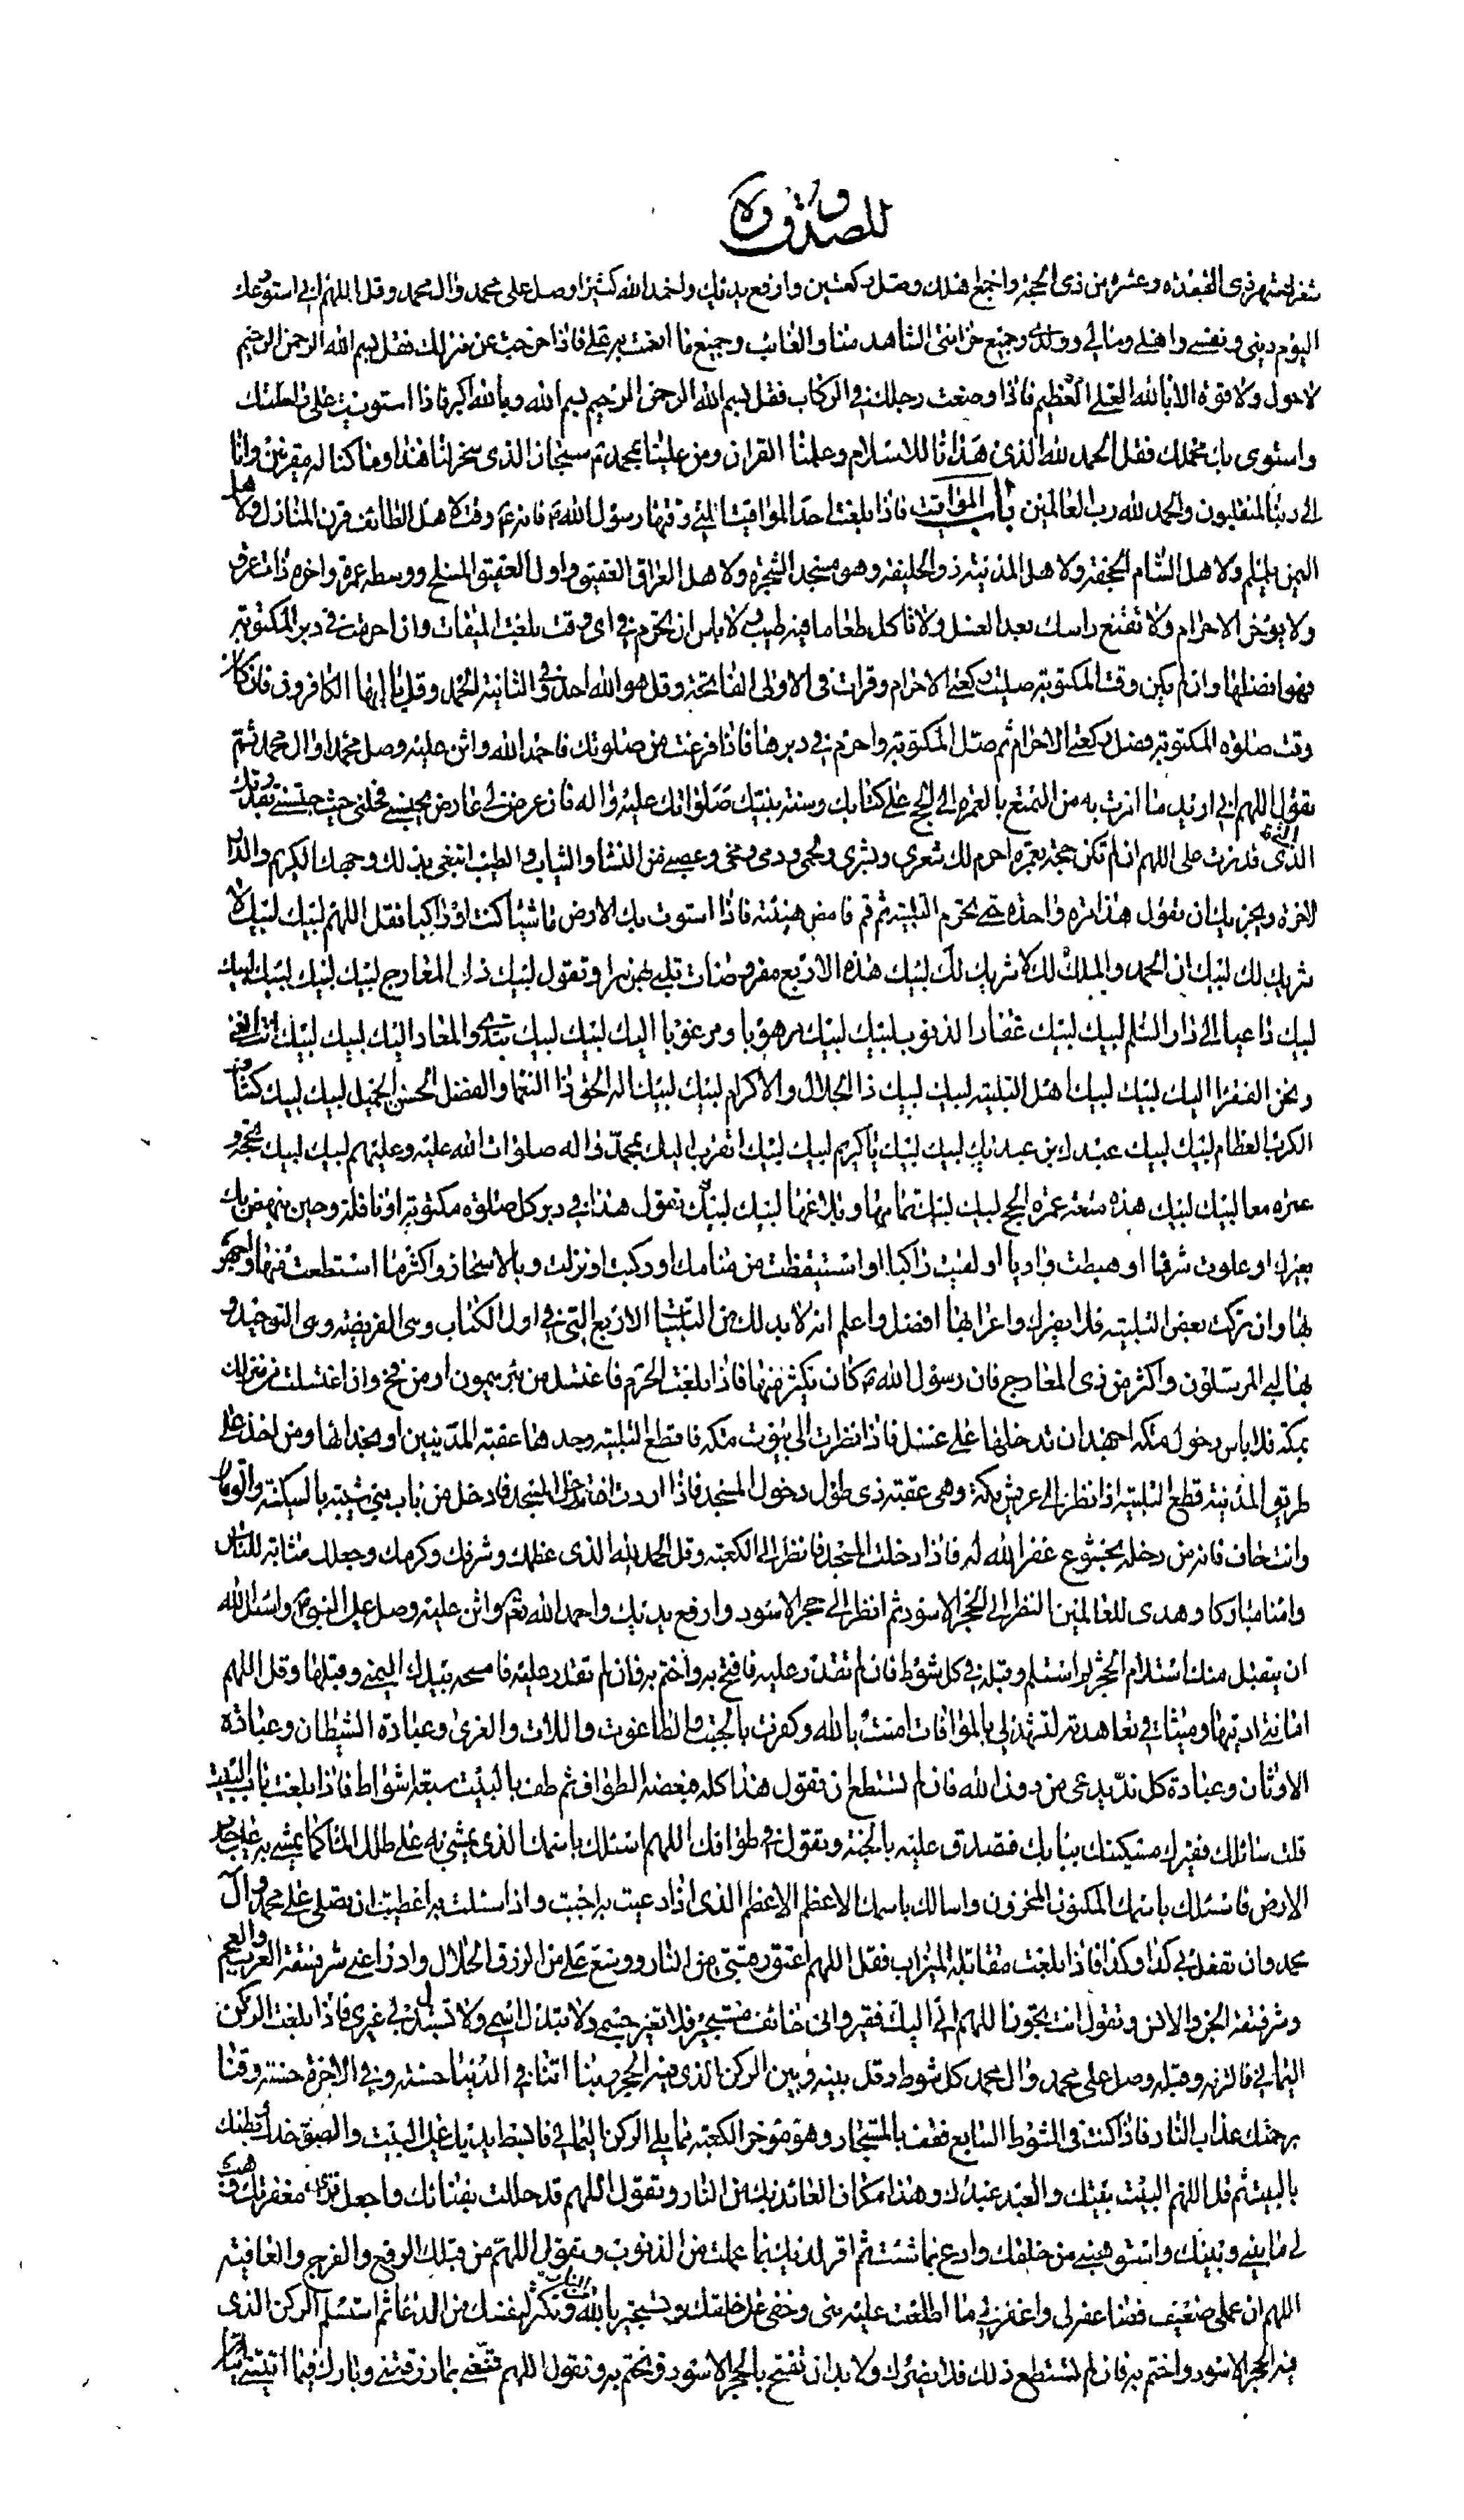 للصدوق ره
شعر لشهر ذى القعده وعشر من ذى الحجة واجمع اهلك وصل ركعتين وارفع يديك واحمد الله كثيرا وصل على محمد وال محمد وقل اللهم انى استودعك
اليوم دينى ونفسى واهلى ومالى وولدى وجميع حزانتى الشاهد منا والغائب وجميع ما انعمت به على فاذا خرجت عن منزلك فقل بسم الله الرحمن الرحيم
لا حول ولا قوة الا بالله العلى العظيم فاذا وضعت رجلك فى الركاب فقل بسم الله الرحمن الرحيم بسم الله وبالله اكبر فاذا استويت على راحلتك
واستوى بك محملك فقل الحمد لله الذى هدانا للاسلام وعلمنا القران ومن علينا بمحمد ص سبحان الذى سخر لنا هذا وما كنا له مقرنين وانا
الى ربنا لمنقلبون والحمد لله رب العالمين باب المواقيت فاذا بلغت احد المواقيت التى وقتها رسول الله ص فانه ص وقت لاهل الطائف قرن المنازل ولاهل
اليمن يلملم ولاهل الشام الجحفة ولاهل المدنية ذو الحليفة وهو مسجد الشجرة ولاهل العراق العقيق واول العقيق المسلخ ووسطه غمرة واخره ذات عرق
ولا يؤخر الاحرام ولا تقنع راسك بعد الغسل ولا تاكل طعاما فيه طيب ولا باس ان تحرم فى اى وقت بلغت الميقات وان احرمت فى دبر المكتوبة
فهو افضلها وان لم يكن وقت المكتوبة صليت ركعتى الاحرام وقرات فى الاولى الفاتحة وقل هو الله احد وفى الثانية الحمد وقل يا ايها الكافرون فان كان
وقت صلوة المكتوبة فصل ركعتى الاحرام ثم صل المكتوبة واحرم فى دبرها فاذا فرغت من صلوتك فاحمد الله واثن عليه وصل محمدا وال محمد ثم
تقول اللهم انى اريد ما امرت به من التمتع بالعمرة الى الحج على كتابك وسنة نبيك صلواتك عليه واله فان عرض لى عارض يحبسنى فحلنى حيث حبستنى بقدرتك
الذى قدرت على اللهم ان لم تكن حجة بعمرة احرم لك شعرى وبشرى ولحمى ودمى ومخى وعصبى من النساء والثياب والطيب ابتغى بذلك وجهك الكريم والدار
الاخرة ويجزيك ان تقول هذا مرة واحدة حتى تحرم التلبية ثم قم فامض هنيئة فاذا استوت بك الارض ماشيا كنت او راكبا فقل اللهم لبيك لبيك لا
شريك لك لبيك ان الحمد والملك لك لا شريك لك لبيك هذه الاربع مفروضات تلبى بهن سرا وتقول لبيك ذا المعارج لبيك لبيك لبيك لبيك
لبيك داعيا الى دار السلم لبيك لبيك غفار الذنوب لبيك لبيك مرهوبا ومرغوبا اليك لبيك لبيك تبدئ والمعاد اليك لبيك لبيك انت الغنى
ونحن الفقراء اليك لبيك لبيك اهل التلبية لبيك لبيك ذا الجلال والاكرام لبيك لبيك اله الحق ذا النعماء والفضل الحسن الجميل لبيك لبيك كشاف
الكرب العظام لبيك لبيك عبدك بن عبديك لبيك لبيك يا كريم لبيك لبيك اتقرب اليك بمحمد واله صلوات الله عليه وعليهم لبيك لبيك بحجة و
عمرة معا لبيك لبيك هذه متعة عمرة الحج لبيك لبيك تمامها وبلاغها لبيك لبيك تقول هذا فى دبر كل صلوة مكتوبة او نافلة وحين ينهض بك
بعيرك او علوت شرفا او هبطت واديا او لقيت راكبا او استيقظت من منامك او ركبت او نزلت وبالاسحار واكثر ما استطعت منها واجهر
بها وان تركت بعض التلبية فلا يضرك واعرابها افضل واعلم انه لابد لك من التلبيات الاربع التى فى اول الكتاب وهى الفريضة وهى التوحيد و
بها لبى المرسلون واكثر من ذى المعارج فان رسول الله ص كان يكثر منها فاذا بلغت الحرم فاغتسل من بئر ميمون او من فخ وان اغتسلت من منزلك
بمكة فلا باس دخول مكة اجهد ان تدخلها على غسل فاذا نظرت الى بيوت مكة فاقطع التلبية وحدها عقبة المدنيين او بحذائها ومن اخذ على
طريق المدنية قطع التلبية اذا نظر الى عريش مكة وهى عقبة ذى طوى دخول المسجد فاذا اردت ان تدخل المسجد فادخل من باب بنى شيبة بالسكينة والوقار
وانت حاف فانه من دخله بخشوع غفر الله له فاذا دخلت المسجد فانظر الى الكعبة وقل الحمد لله الذى عظمك وشرفك وكرمك وجعلك مثابة للناس
وامنا مباركا وهدى للعالمين النظر الى الحجر الاسود ثم انظر الى حجر الاسود وارفع يديك واحمد الله تعم واثن عليه وصل على النبى ص واسئل الله
ان يتقبل منك استلام الحجر ثم استلم وقبله فى كل شوط فان لم تقدر عليه فافتح به واختم به فان لم تقدر عليه فامسحه بيدك اليمنى وقبلها وقل اللهم
امانتى اديتها وميثاقى تعاهدته لتشهد لى بالموافات امنت بالله وكفرت بالجبت والطاغوت واللات والعزى وعبادة الشيطان وعبادة
الاوثان وعبادة كل ند يدعى من دون الله فان لم تستطع ان تقول هذا كله فبعضه الطواف ثم طف بالبيت سبعة اشواط فاذا بلغت باب البيت
قلت سائلك فقيرك مسكينك ببابك فتصدق عليه بالجنة وتقول فى طوافك اللهم اسئلك باسمك الذى يمشى به على طلل الماء كما يمشى به على جدد
الارض فاسئلك باسمك المكنون المخزون واسالك باسمك الاعظم الاعظم الذى اذا دعيت به اجبت واذا سئلت به اعطيت ان تصلى على محمد وآل
محمد وان تفعل بى كذا وكذا فاذا بلغت مقابلة الميزاب فقل اللهم اعتق رقبتى من النار ووسع على من الرزق الحلال وادرأ عنى شر فسقة العرب والعجم
وشر فسقة الجن والانس وتقول انت تجوز اللهم انى اليك فقير وانى خائف مستجير فلا تغير جسمى ولا تبدل اسمى ولا تستبدل بى غيرى فاذا بلغت الركن
اليمانى فالتزمه وقبله وصل على محمد وال محمد كل شوط وقل بينه وبين الركن الذى فيه الحجر ربنا اتنا فى الدنيا حسنة وفى الاخرة حسنة وقنا
برحمتك عذاب النار فاذا كنت فى الشوط السابع فقف بالمستجار وهو مؤخر الكعبة مما يلى الركن اليمانى فابسط يديك على البيت والصق خدك وبطنك
بالبيت ثم قل اللهم البيت بيتك والعبد عبدك وهذا مكان العائذ بك من النار وتقول اللهم قد حللت بفنائك فاجعل قراى مغفرتك وهب
لى ما بينى وبينك واستوهبنى من خلقك وادع بما شئت ثم اقر لذنبك بما عملت من الذنوب وتقول اللهم من قبلك الروح والفرج والعافية
اللهم ان عملى ضعيف فضاعفه لى واغفر لى ما اطلعت عليه منى وخفى على خلقك وتستجير بالله من النار وتكثر لنفسك من الدعاء ثم استسلم الركن الذى
فيه الحجر الاسود واختم به فان لم تستطع ذلك فلا يضرك ولا بد ان تفتح بالحجر الاسود وتختم به وتقول اللهم قنعنى بما رزقتنى وبارك فيما اتيتنى